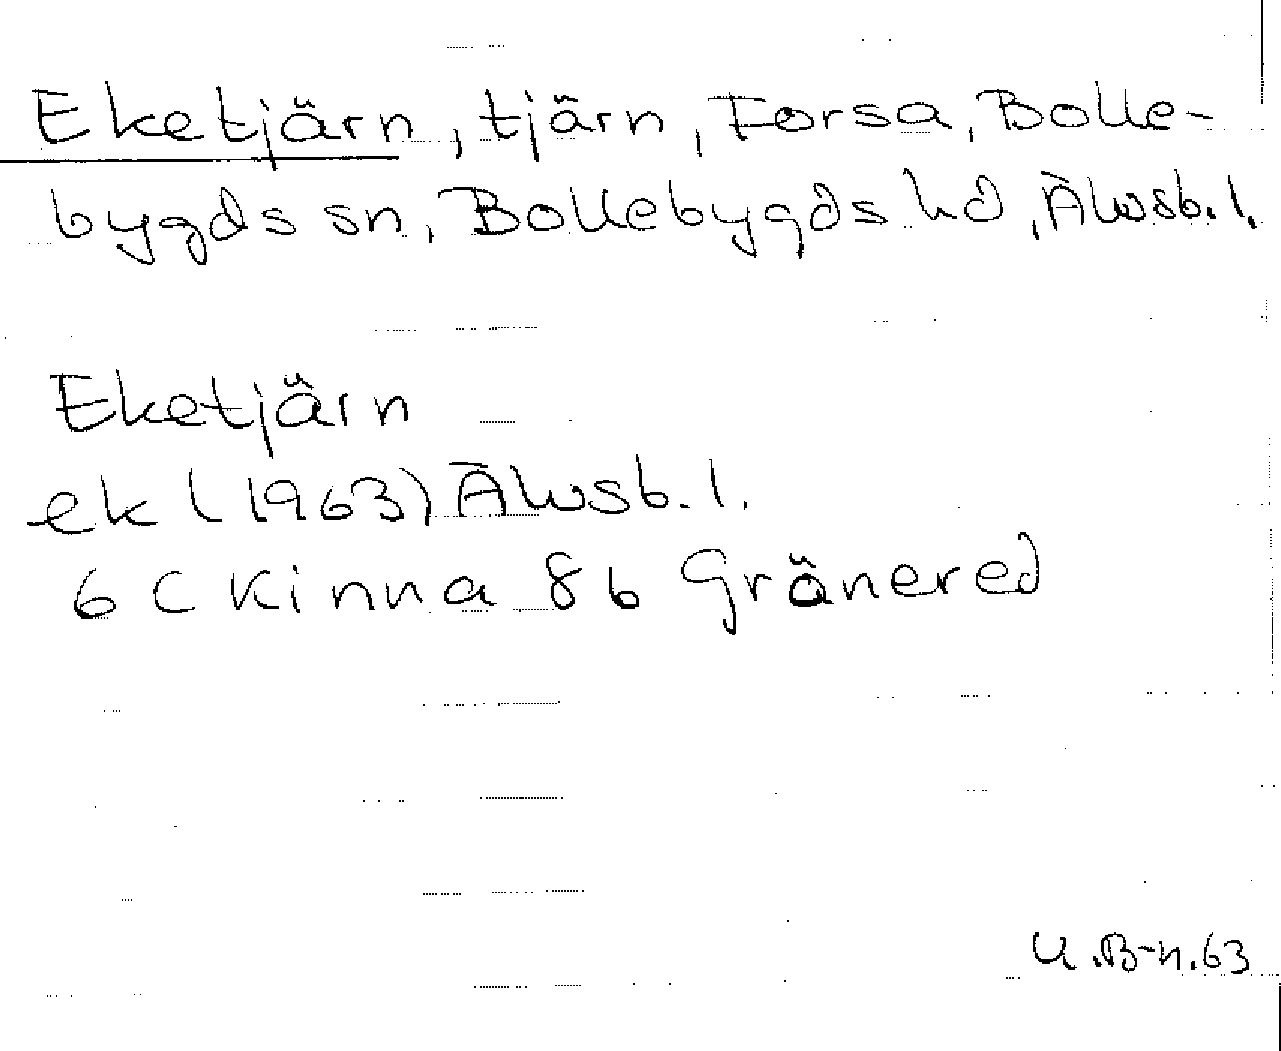 Eketjärn, tjärn, Forsa, Bolle-
bygds sn, Bollebygds hd, Älvsb.l.
Eketjärn
ek (1963) Älvsb.l.
6 C Kinna 8b Gränered
U.B-n.63